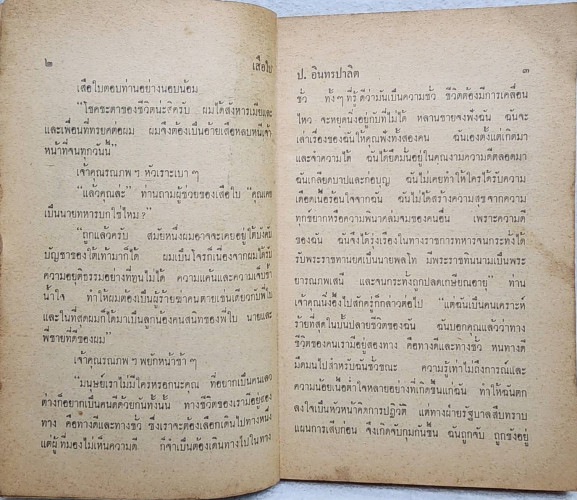 ๒
เสือใบ
เสือใบตอบท่านอย่างนอบน้อม
"โชคชะตาของชีวิตน่ะซิครับ ผมได้สังหารเมียและ
และเพื่อนที่ทรยศต่อผม ผมจึงต้องเป็นอ้ายเสือหลบหนีเจ้า
หน้าที่จนทุกวันนี้"
เจ้าคุณรณภพ ฯ หัวเราะเบา ๆ
"แล้วคุณล่ะ" ท่านถามผู้ช่วยของเสือใบ "คุณเคย
เป็นนายทหารบกใช่ไหม?
"ถูกแล้วครับ สมัยหนึ่งผมอาจจะเคยอยู่ใต้บังคับ
บัญชาของใต้เท้ามาก็ได้ ผมเป็นโจรก็เนื่องจากผมได้รับ
ความอยุติธรรมอย่างที่ทนไม่ได้ ความแค้นและความเจ็บช้ำ
น้ำใจ ทำให้ผมต้องเป็นผู้ร้ายฆ่าคนตายเช่นเดียวกับพี่ใบ
และในที่สุดผมก็ได้มาเป็นลูกน้องคนสนิทของพี่ใบ นายและ
พี่ชายที่ดีของผม"
เจ้าคุณรณภพ ฯ พยักหน้าช้า ๆ
"มนุษย์เราไม่มีใครหรอกนะคุณ ที่อยากเป็นคนเลว
ต่างก็อยากเป็นคนดีด้วยกันทั้งนั้น ทางชีวิตของเรามีอยู่สอง
ทาง คือทางดีและทางชั่ว ซึ่งเราจะต้องเลือกเดินไปทางหนึ่ง
แต่ผู้ที่มองไม่เห็นความดี ก็จำเป็นต้องเดินทางไปในทาง
ป. อินทรปาลิต
๓
ชั่ว ทั้งๆ ที่รู้ดีว่ามันเป็นความชั่ว ชีวิตต้องมีการเคลื่อน
ไหว จะหยุดนิ่งอยู่กับที่ไม่ได้ หลานชายจงฟังฉัน ฉันจะ
เล่าเรื่องของฉันให้คุณฟังทั้งสองคน ฉันเองตั้งแต่เกิดมา
และจำความได้ ฉันได้ยึดมั่นอยู่ในคุณงามความดีตลอดมา
ฉันเกลียดบาปและก่อบุญ ฉันไม่เคยทำให้ใครได้รับความ
เดือดเนื้อร้อนใจจากฉัน ฉันไม่ได้สร้างความสุขจากความ
ทุกข์ยากหรือความพินาศล่มจมของคนอื่น เพราะความดี
ของฉัน ฉันจึงได้รุ่งเรืองในทางราชการทหารจนกระทั่งได้
รับพระราชทานยศเป็นนายพลโท มีพระราชทินนามเป็นพระ
ยารณภพเสนี และจนกระทั่งถูกปลดเกษียณอายุ ท่าน
เจ้าคุณนิ่งอึ้งไปสักครู่ก็กล่าวต่อไป "แต่ฉันเป็นคนเคราะห์
ร้ายที่สุดในบั้นปลายชีวิตของฉัน ฉันบอกคุณแล้วว่าทาง
ชีวิตของคนเรามีอยู่สองทาง คือทางดีและทางชั่ว หนทางดี
มืดมนไปสำหรับฉันชั่วขณะ ความรู้เท่าไม่ถึงการณ์และ
ความน้อยเนื้อต่ำใจหลายอย่างที่เกิดขึ้นแก่ฉัน ทำให้ฉันตก
ลงใจเป็นหัวหน้าคิดการปฏิวัติ แต่ทางฝ่ายรัฐบาลสืบทราบ
แผนการเสียก่อน จึงเกิดจับกุมกันขึ้น ฉันถูกจับ ถูกขังอยู่